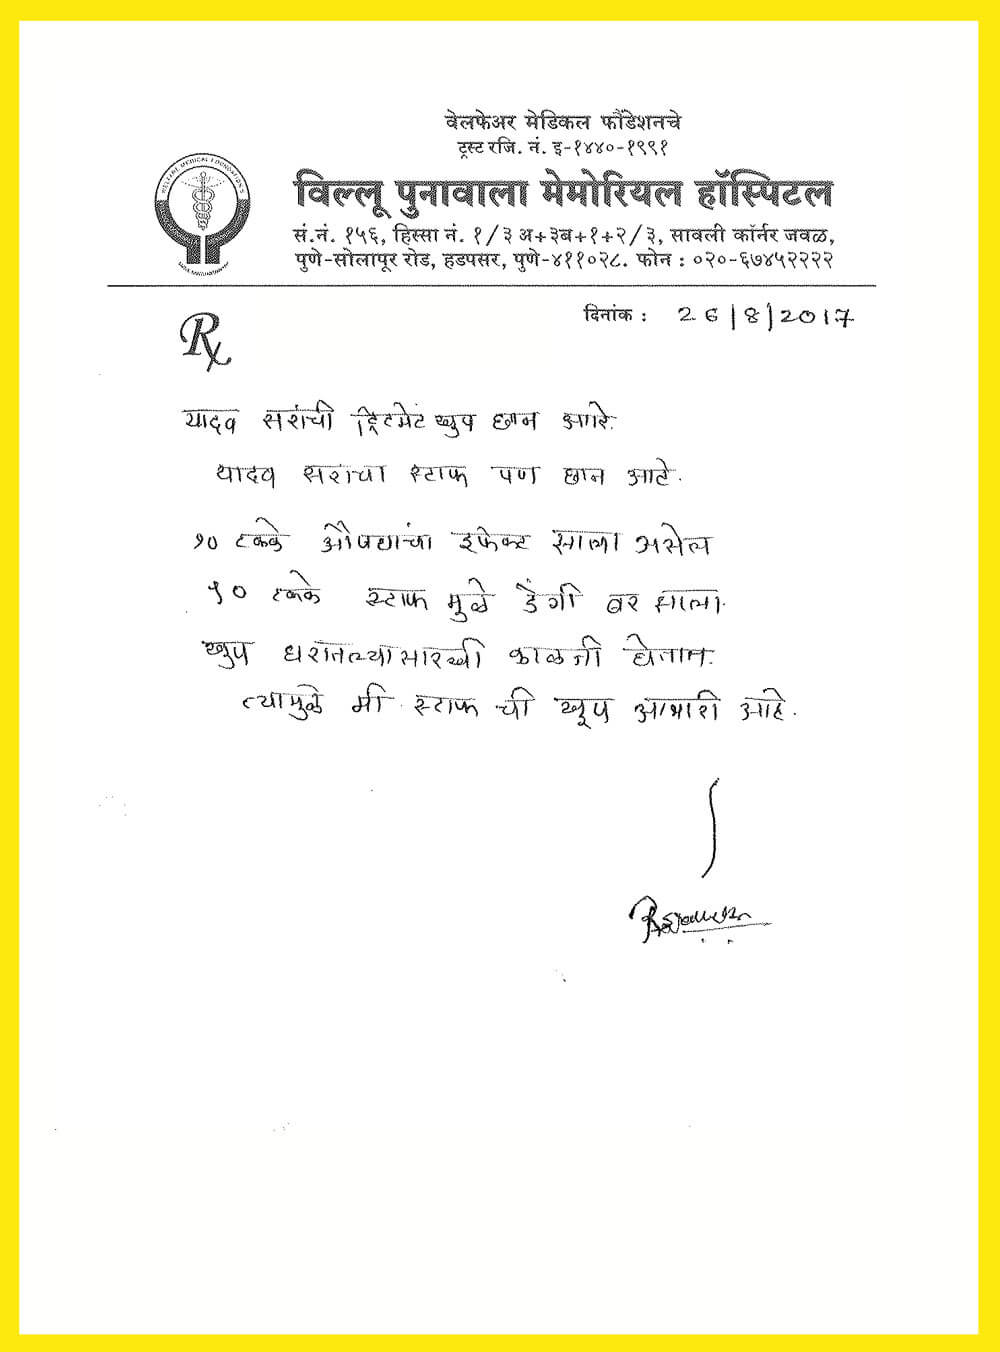 वेलफेअर मेडिकल फौंडेशनचे
ट्रस्ट रजि. नं. इ-१४४०-१९९१
WELFARE MEDICAL FOUNDATION'S
विल्लू पुनावाला मेमोरियल हॉस्पिटल
सं.नं. १५६, हिस्सा नं. १/३ अ+३ब+१+२/३, सावली कॉर्नर जवळ,
पुणे-सोलापूर रोड, हडपसर, पुणे-४११०२८. फोन : ०२०-६७४५२२२२
दिनांक : 26/8/2017
Rx
यादव सरांची ट्रिटमेंट खुप छान आहे.
यादव सरांचा स्टाफ पण छान आहे.
५० टक्के औषधांचा इफेक्ट झाला असेल
५० टक्के स्टाफ मुळे डेंगी बर झाला.
खुप घरातल्यासारखी काळजी घेतात.
त्यामुळे मी स्टाफ ची खूप आभारी आहे.